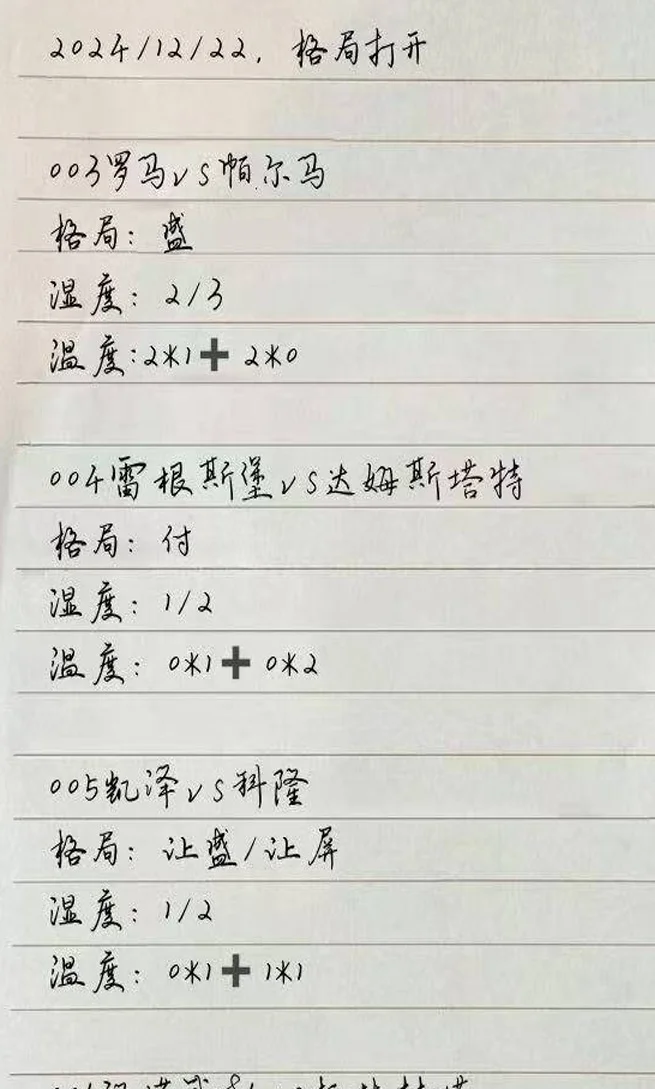 2024/12/22，格局打开
003罗马vs帕尔马
格局：盛
湿度：2/3
温度：2*1➕ 2*0
004雷根斯堡vs达姆斯塔特
格局：付
湿度：1/2
温度：0*1➕ 0*2
005凯泽vs科隆
格局：让盛/让屏
湿度：1/2
温度：0*1➕ 1*1